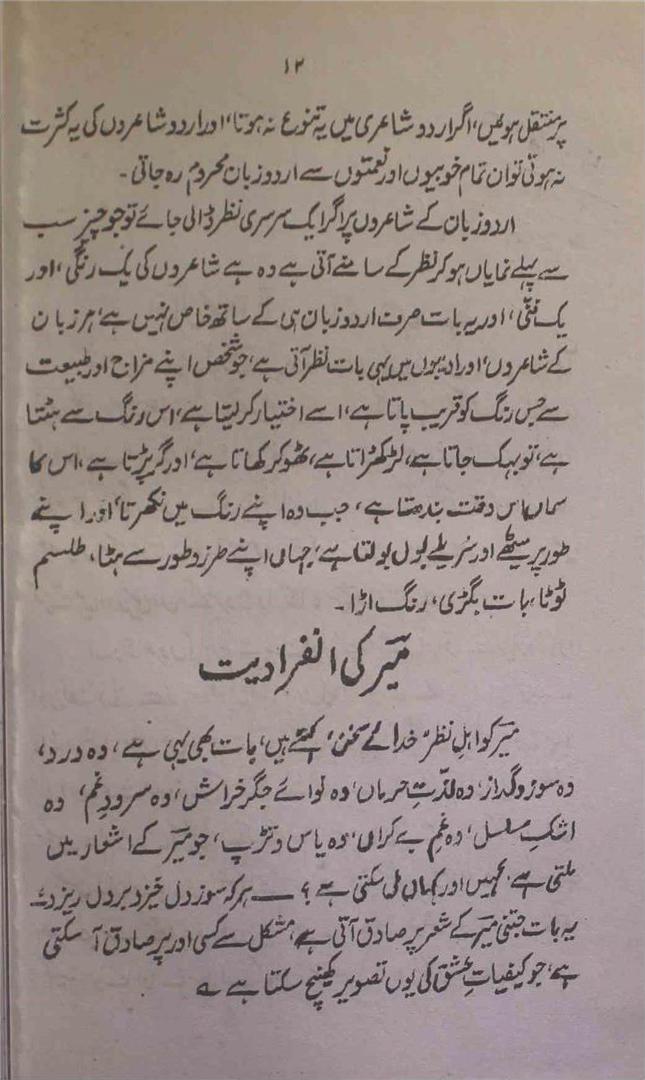 ۱۲
پر منتقل ہوئیں، اگر اردو شاعری میں یہ تنوع نہ ہوتا، اور اردو شاعروں کی یہ کثرت
نہ ہوتی تو ان تمام خوبیوں اور نعمتوں سے اردو زبان محروم رہ جاتی۔
اردو زبان کے شاعروں پر اگر ایک سرسری نظر ڈالی جائے تو جو چیز سب
سے پہلے نمایاں ہو کر نظر کے سامنے آتی ہے وہ ہے شاعروں کی یک رنگی، اور
یک فنّی، اور یہ بات صرف اردو زبان ہی کے ساتھ خاص نہیں ہے، ہر زبان
کے شاعروں، اور ادیبوں میں یہی بات نظر آتی ہے، جو شخص اپنے مزاج اور طبیعت
سے جس رنگ کو قریب پاتا ہے، اسے اختیار کر لیتا ہے، اس رنگ سے ہٹتا
ہے، تو بہک جاتا ہے، لڑکھڑاتا ہے، ٹھوکر کھاتا ہے، اور گر پڑتا ہے، اس کا
سماں اس وقت بندھتا ہے، جب وہ اپنے رنگ میں نکھرتا، اور اپنے
طور پر میٹھے اور سریلے بول بولتا ہے، جہاں اپنے طرز و طور سے ہٹا، طلسم
ٹوٹا، بات بگڑی، رنگ اڑا۔
میرؔ کی انفرادیت
میرؔ کو اہلِ نظر ’خدائے سخن‘ کہتے ہیں، بات بھی یہی ہے، وہ درد،
وہ سوز و گداز، وہ لذّتِ حرماں، وہ نوائے جگر خراش، وہ سرودِ غم، وہ
اشکِ مسلسل، وہ غمِ بے کراں، وہ یاس و تڑپ، جو میرؔ کے اشعار میں
ملتی ہے، کہیں اور کہاں مل سکتی ہے؟ — ہر کہ سوز دل خیزد بر دل ریزد۔
یہ بات جتنی میرؔ کے شعر پر صادق آتی ہے، مشکل سے کسی اور پر صادق آ سکتی
ہے، جو کیفیاتِ عشق کی یوں تصویر کھینچ سکتا ہے ؎